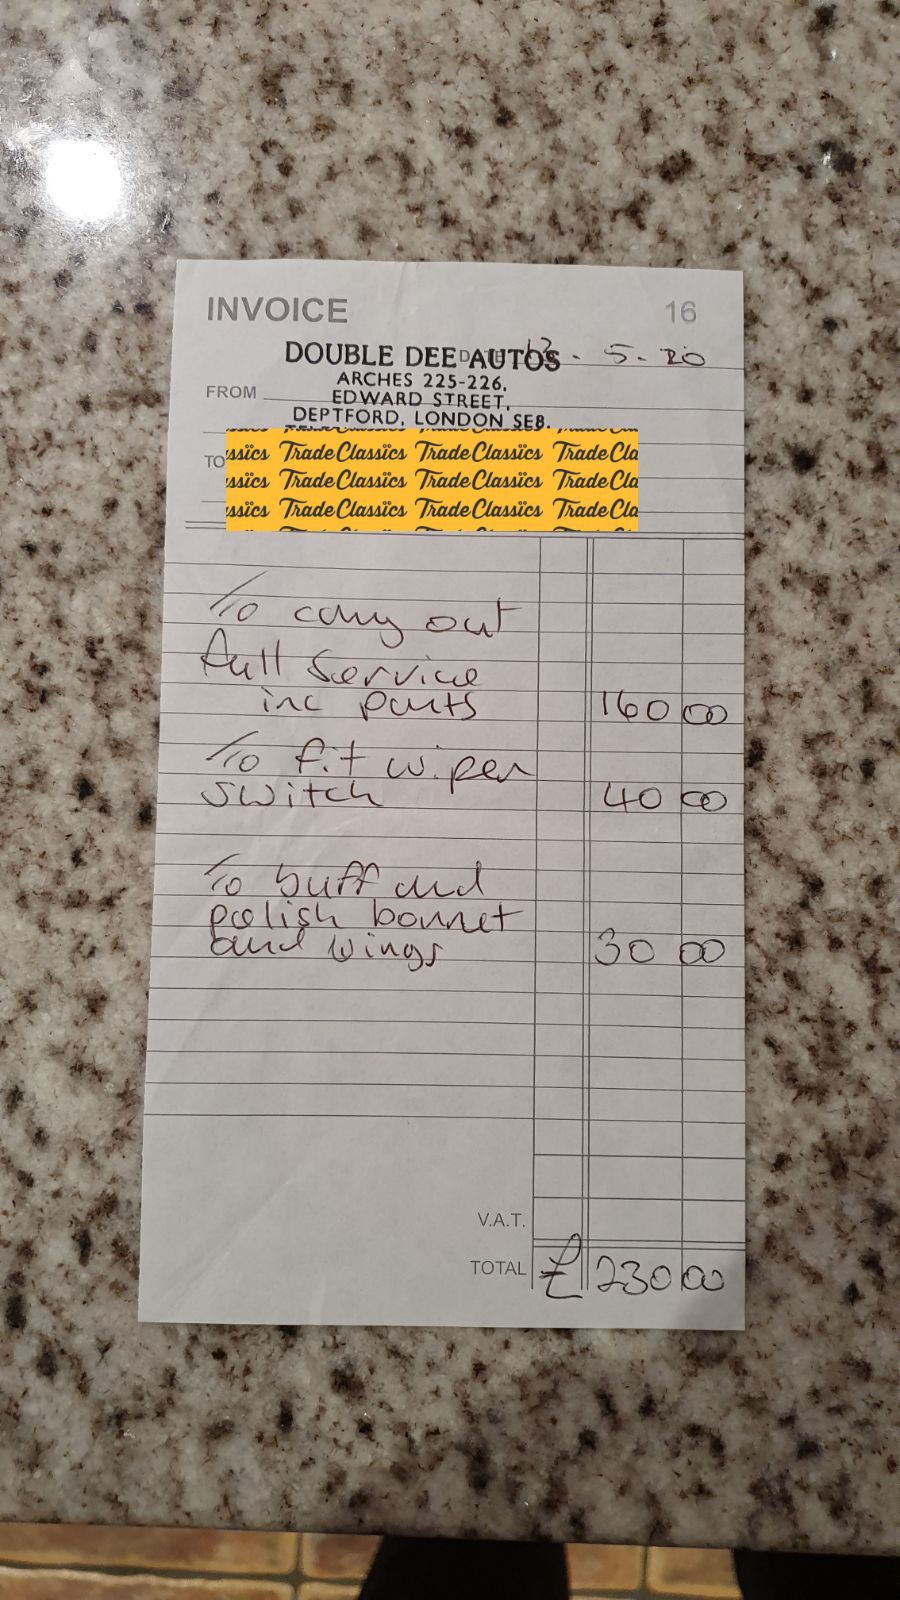 INVOICE 16
DOUBLE DEE AUTOS
- 5 - 20
ARCHES 225-226,
FROM
EDWARD STREET,
DEPTFORD, LONDON SE8.
TO
Trade Classics Trade Classics
Trade Classics Trade Classics
Trade Classics Trade Classics
To carry out
full service
inc parts 160 00
To fit wiper
switch 40 00
To buff and
polish bonnet
and wings 30 00
V.A.T.
TOTAL £ 230 00